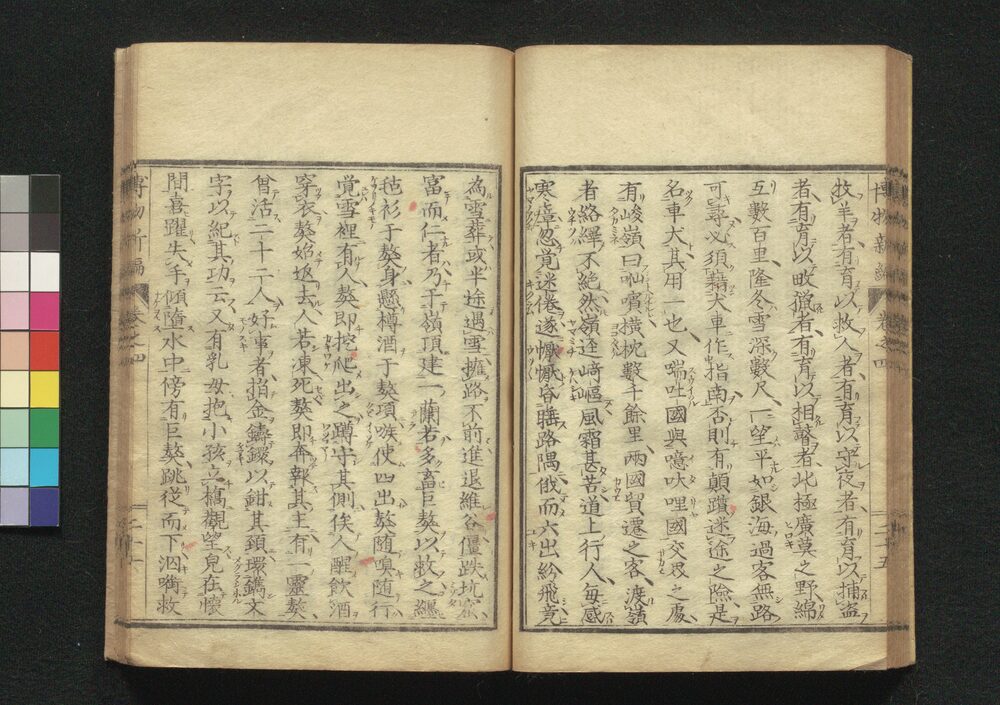 博物新編 卷之四
牧羊者有育以救人者有育以守夜者有育以捕盜
者有育以畋獵者有育以相瞽者北極廣莫之野綿
亙數百里隆冬雪深數尺一望平如銀海過客無路
可尋必須藉犬車作指南否則有顛躓迷途之險是
名車犬其用一也又喘吐國與噫吠哩國交界之處
有峻嶺曰 橫枕數千餘里兩國貿遷之客渡嶺
者絡繹不絕然嶺逕﨑嶇風霜甚苦道上行人每感
寒瘴忽覺迷倦遂懨懨昏睡路隅俄而六出紛飛竟
二十五
為雪葬或半途遇雪擁路不前進退維谷僵跌坑窟
富而仁者乃于嶺頂建一蘭若多畜巨獒以救之纏
毡衫于獒身懸樽酒于獒項嗾使四出獒隨嗅隨行
覺雪裡有人獒即挖爬出之蹲守其側俟人醒飲酒
穿衣獒始返去人若凍死獒即奔報其主有一靈獒
曾活二十二人好事者拍金鑄鐲以鉗其頸環鐫文
字以紀其功云又有乳母抱小孩立橋觀望兒在懷
間喜躍失手傾墮水中傍有巨獒跳從而下泅㗸救
博物新編 卷之四
二十六